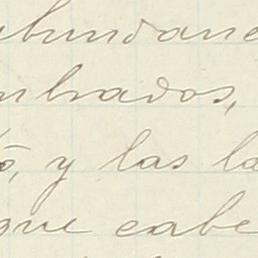 abundanc
mbrados,
ó, y las la
que cabe